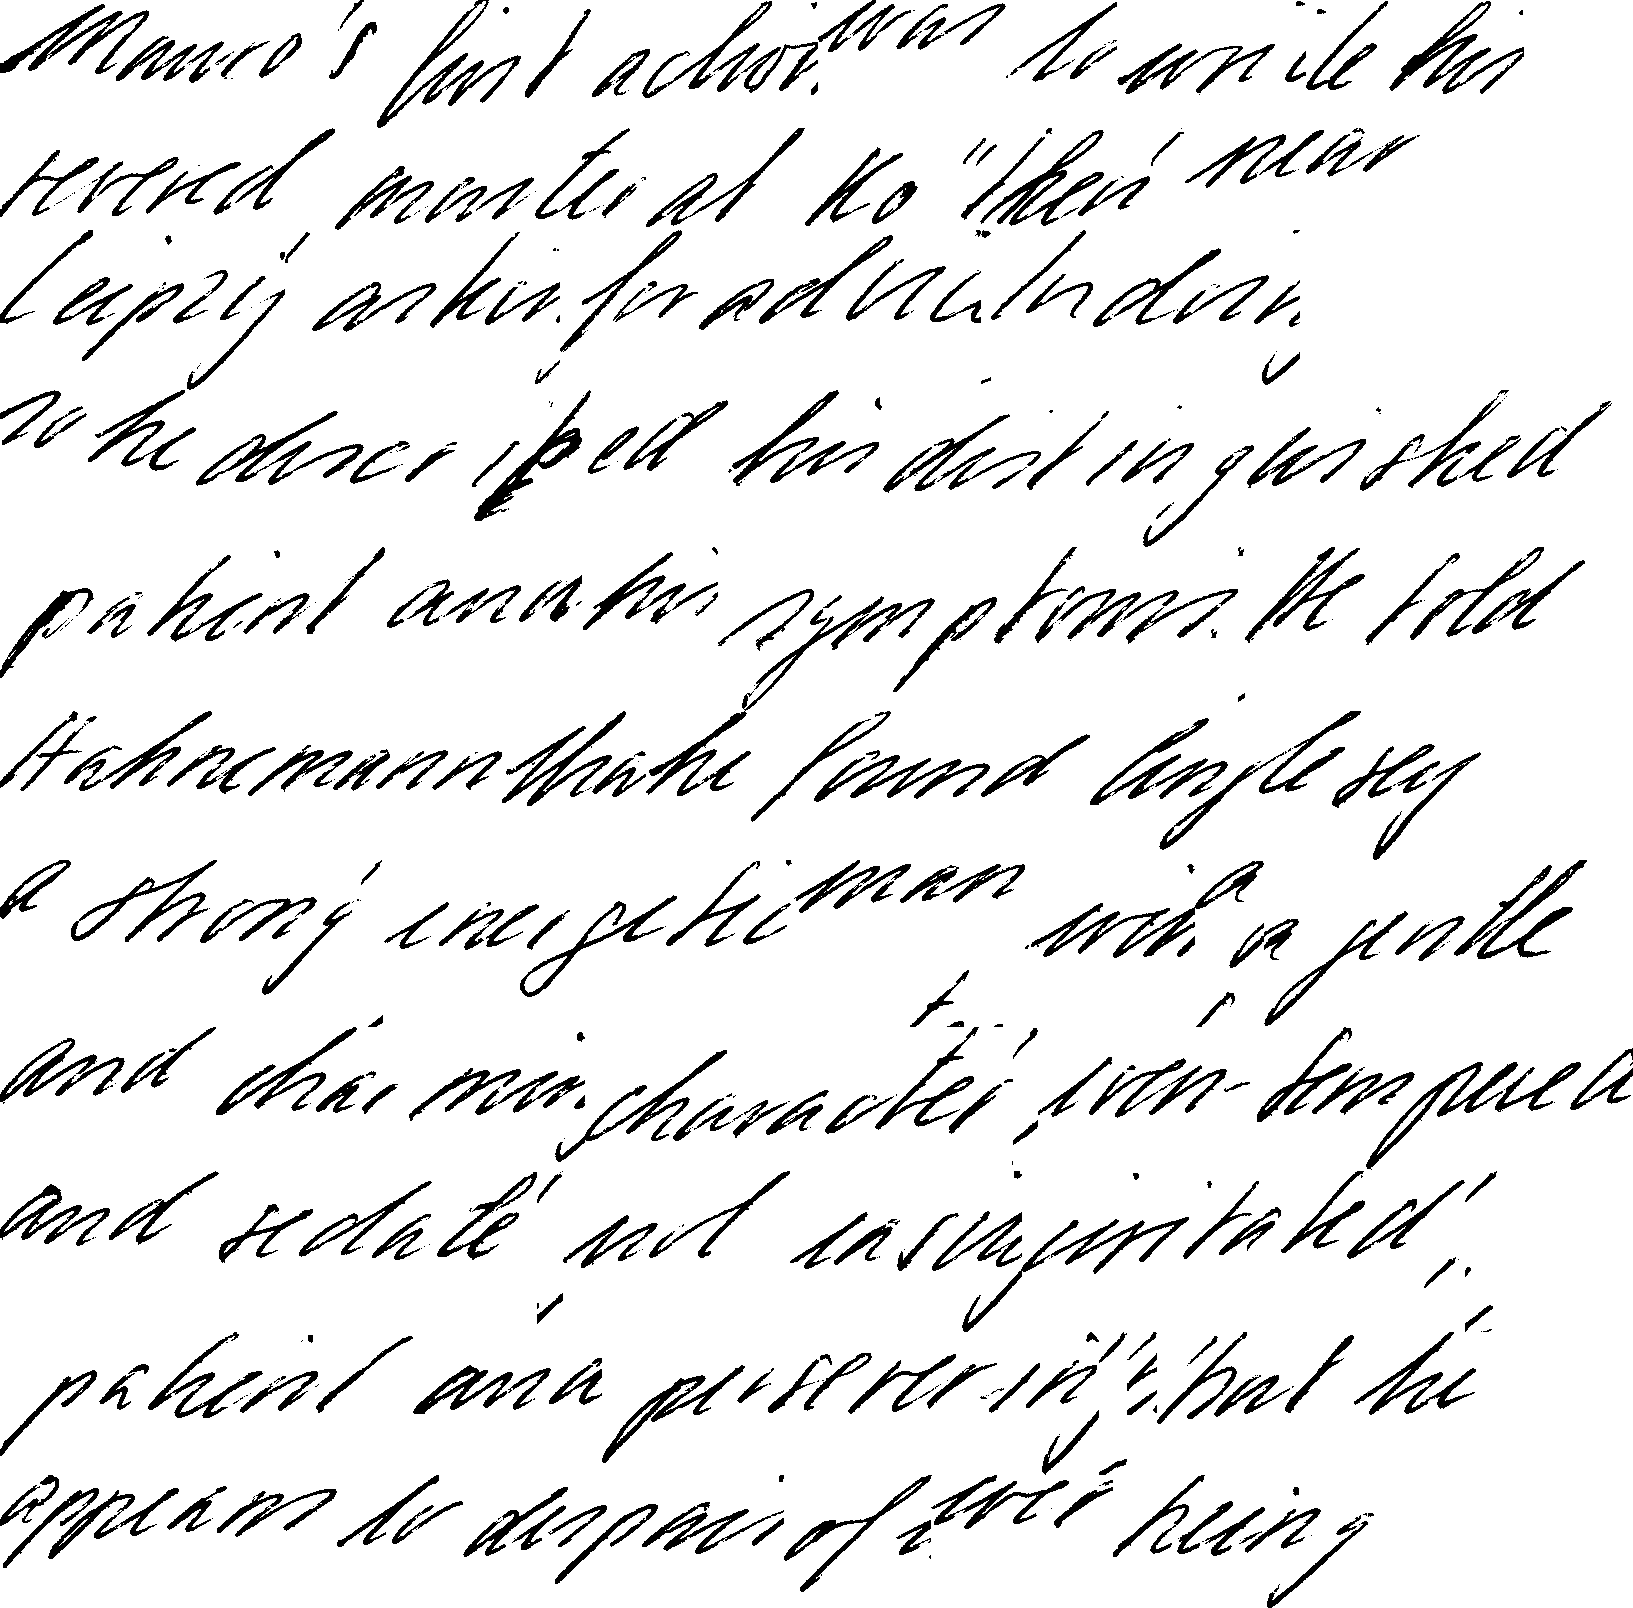 Mauro's first action was to write his
revered master at Kö then near
Leipzig asking for advice. In doing
so he described his distinguished
patient and his symptoms. He told
Hahnemann that he found Anglesey
a strong energetic man with a gentle
and charming character, even-tempered
and sedate, not easily irritated,
patient and persevering, that he
appears to despair of ever being